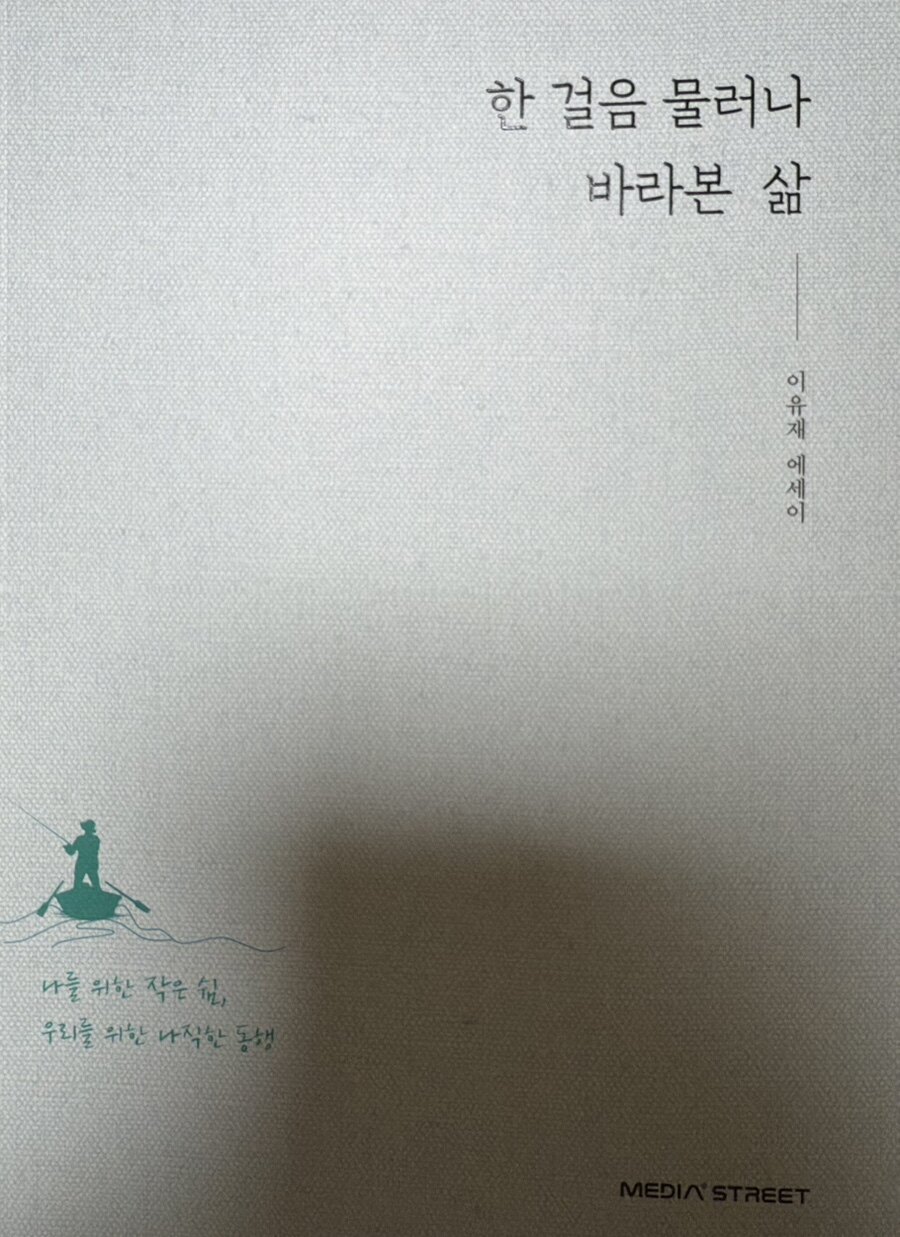 한 걸음 물러나
바라본 삶
이유재 에세이
나를 위한 작은 쉼,
우리를 위한 나직한 동행
MEDIA STREET